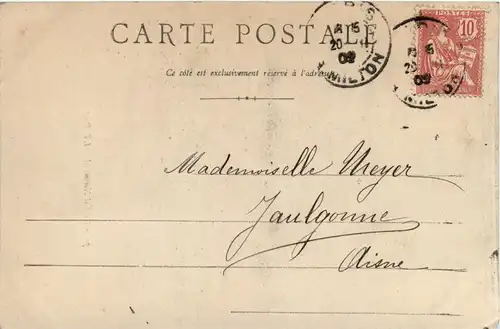 CARTE POSTALE
Ce côté est exclusivement réservé à l'adresse
POSTES
10
15
20
02
MILTON
15
02
Mademoiselle Meyer
Jaulgonne
Aisne